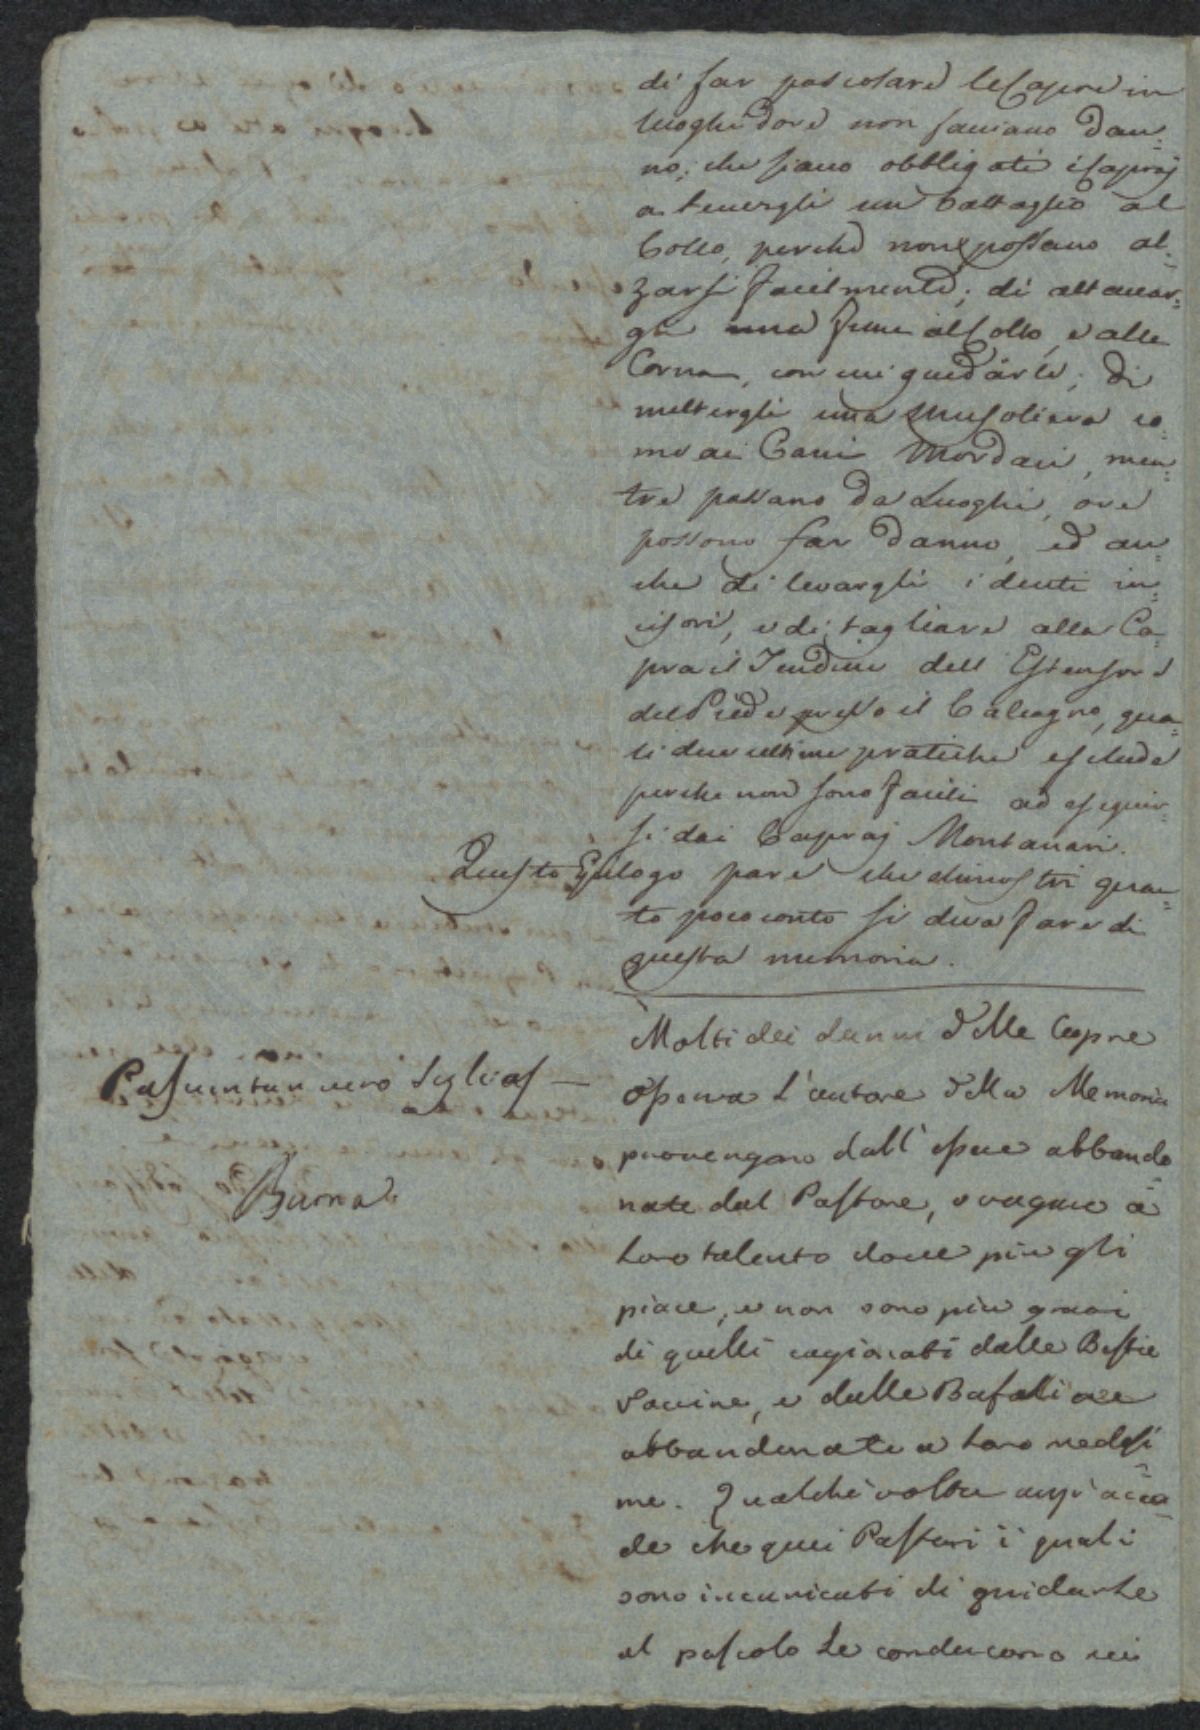 di far pascolare le Capre in
luoghi dove non facciano dan=
no; che siano obbligati i Capraj
a tenergli un battaglio al
Collo, perchè non possano al=
zarsi facilmente; di attaccar=
gli una fune al Collo, e alle
Corna, con cui guidarle; di
mettergli una Musoliera co=
me ai Cani Mordaci, men=
tre passano da Luoghi, ove
possono far danno, ed an=
che di levargli i denti in=
cisori, e di tagliare alla Ca=
pra il Tendine dell' Estensore
del Piede presso il Calcagno, qua=
li due ultime pratiche esclude
perchè non sono facili ad eseguir=
si dai Capraj Montanari.
Questo Epilogo pare che dimostri quan=
to poco conto si deva fare di
questa memoria.
Molti dei danni delle Capre
osserva l'autore della Memoria
provengono dall' essere abbando=
nate dal Pastore, e vagare a
loro talento dove più gli
piace, e non sono più gravi
di quelli cagionati dalle Bestie
Vaccine, e dalle Bufaline
abbandonate a loro medesi=
me. Qualche volta anzi acca=
de che quei Pastori i quali
sono incaricati di guidarle
al pascolo le conducono in